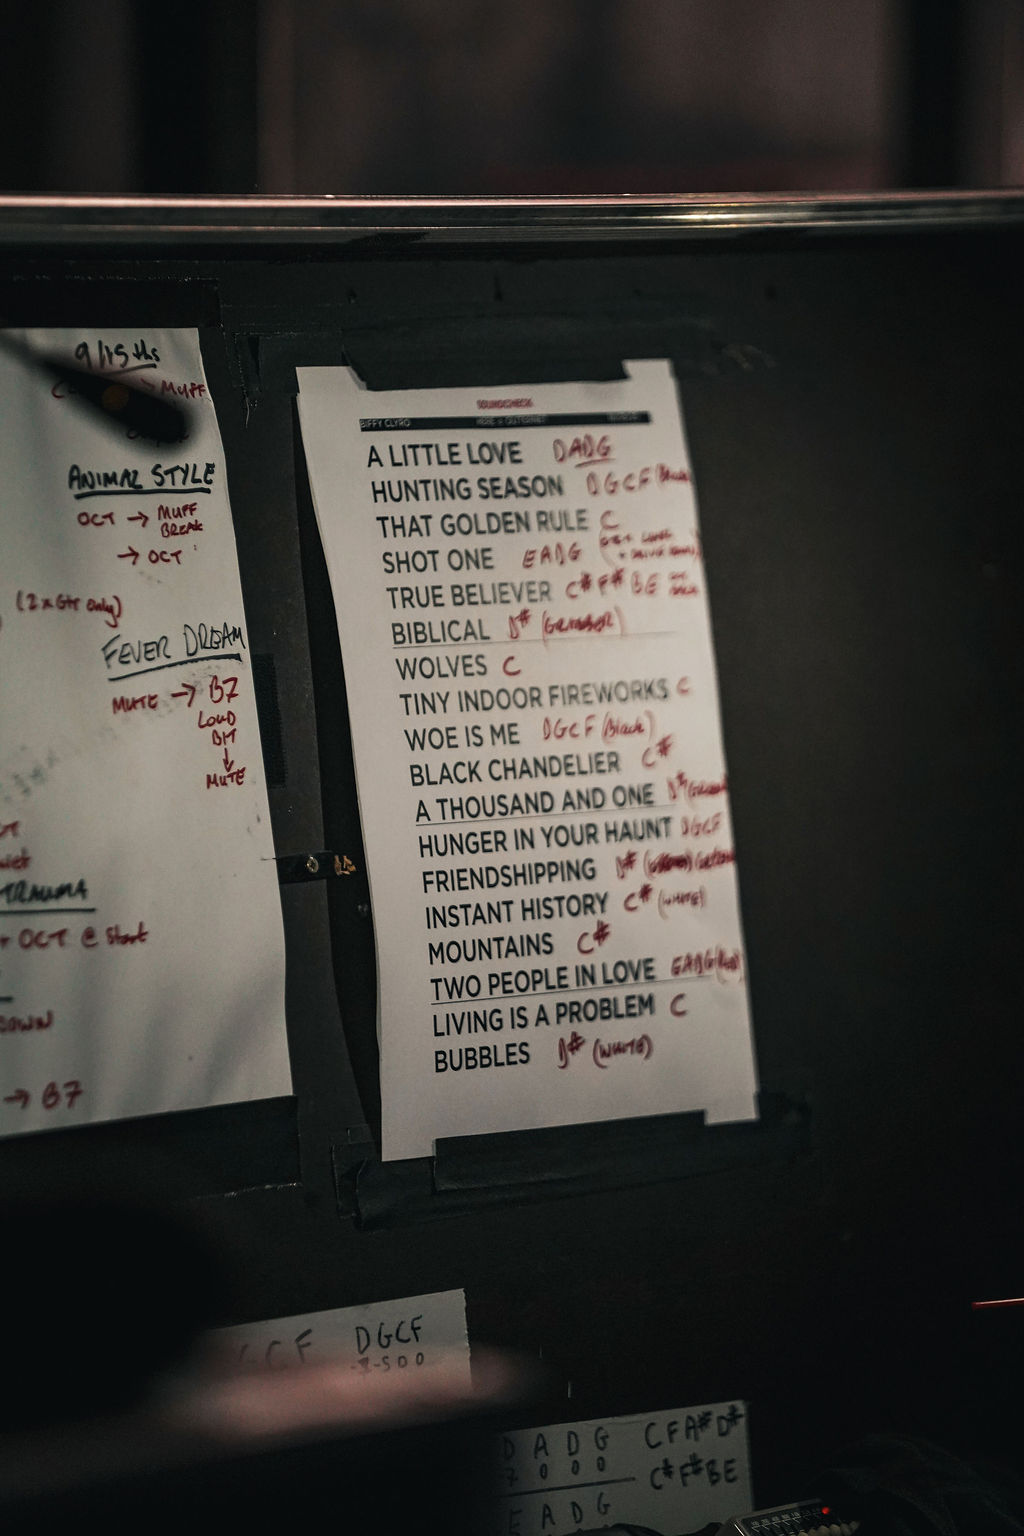 9/15ths
→ MUFF
ANIMAL STYLE
OCT → MUFF
BREAK
→ OCT
(2xGtr only)
FEVER DREAM
MUTE → B7
LOUD
BIT
↓
MUTE
TRAUMA
+ OCT @ Start
→ B7
SOUNDCHECK
BIFFY CLYRO
A LITTLE LOVE DADG
HUNTING SEASON DGCF
THAT GOLDEN RULE C
SHOT ONE EADG
TRUE BELIEVER C#F#BE
BIBLICAL D#
WOLVES C
TINY INDOOR FIREWORKS C
WOE IS ME DGCF (Black)
BLACK CHANDELIER C#
A THOUSAND AND ONE D#
HUNGER IN YOUR HAUNT DGCF
FRIENDSHIPPING D#
INSTANT HISTORY C# (WHITE)
MOUNTAINS C#
TWO PEOPLE IN LOVE EADG
LIVING IS A PROBLEM C
BUBBLES D# (WHITE)
GCF DGCF
D A D G CFA#D#
7 0 0 0 C#F#BE
E A D G